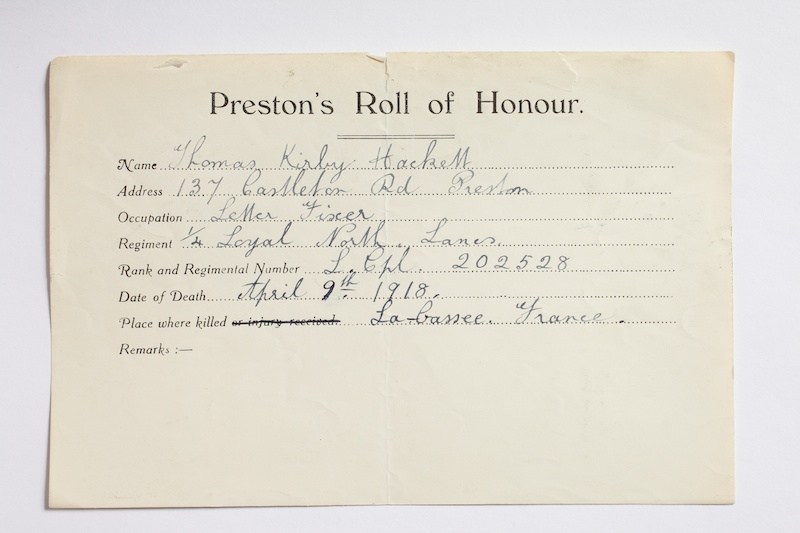 Preston's Roll of Honour.
Name Thomas Kirby Hackett
Address 137 Castleton Rd Preston
Occupation Letter Fixer
Regiment 1/4 Loyal North. Lancs.
Rank and Regimental Number L. Cpl. 202528
Date of Death April 9th 1918.
Place where killed or injury received. La-bassee. France.
Remarks :—